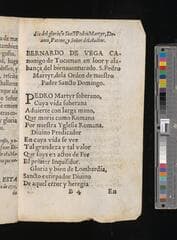 BERNARDO DE VEGA CA-
nonigo de Tucuman en loor y ala-
bança del bienauenturado S. Pedro
Martyr, de la Orden de nuestro
Padre Sancto Domingo.
PEDRO Martyr soberano,
Cuya vida soberana
Aduierte con larga mano,
Que moris como Romano
Por nuestra Yglesia Romana.
Diuino Predicador
En cuya vida se ver
Tal grandeza y tal valor
Que soys en actos de Fee
El primer Inquisidor.
Gloria y bien de Lombardia,
Sancto extirpador Diuino
De aquel error y heregia
B 4 En